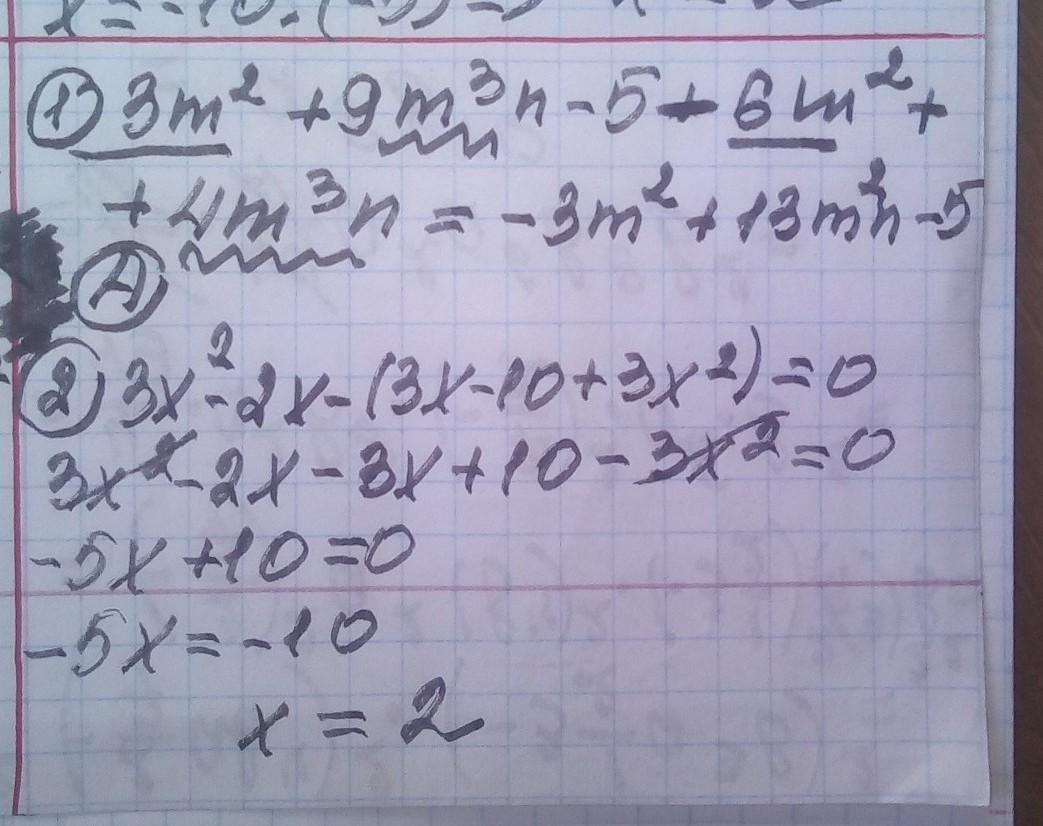 ① 3m² + 9m³n - 5 - 6m² +
+ 4m³n = -3m² + 13m²n - 5
Ⓐ
② 3x² - 2x - (3x - 10 + 3x²) = 0
3x² - 2x - 3x + 10 - 3x² = 0
-5x + 10 = 0
-5x = -10
x = 2